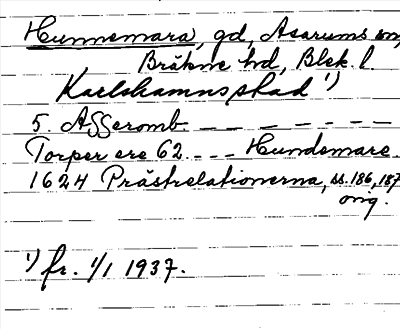 Hunnemara, gd, Asarums sn,
Bräkne hd, Blek. l.
Karlshamns stad ¹)
5. Afseromb. — — — — — —
Torper ere 62 - - - Hundemare.
1624 Prästrelationerna, ss. 186, 187
orig.
¹) fr. 1/1 1937.